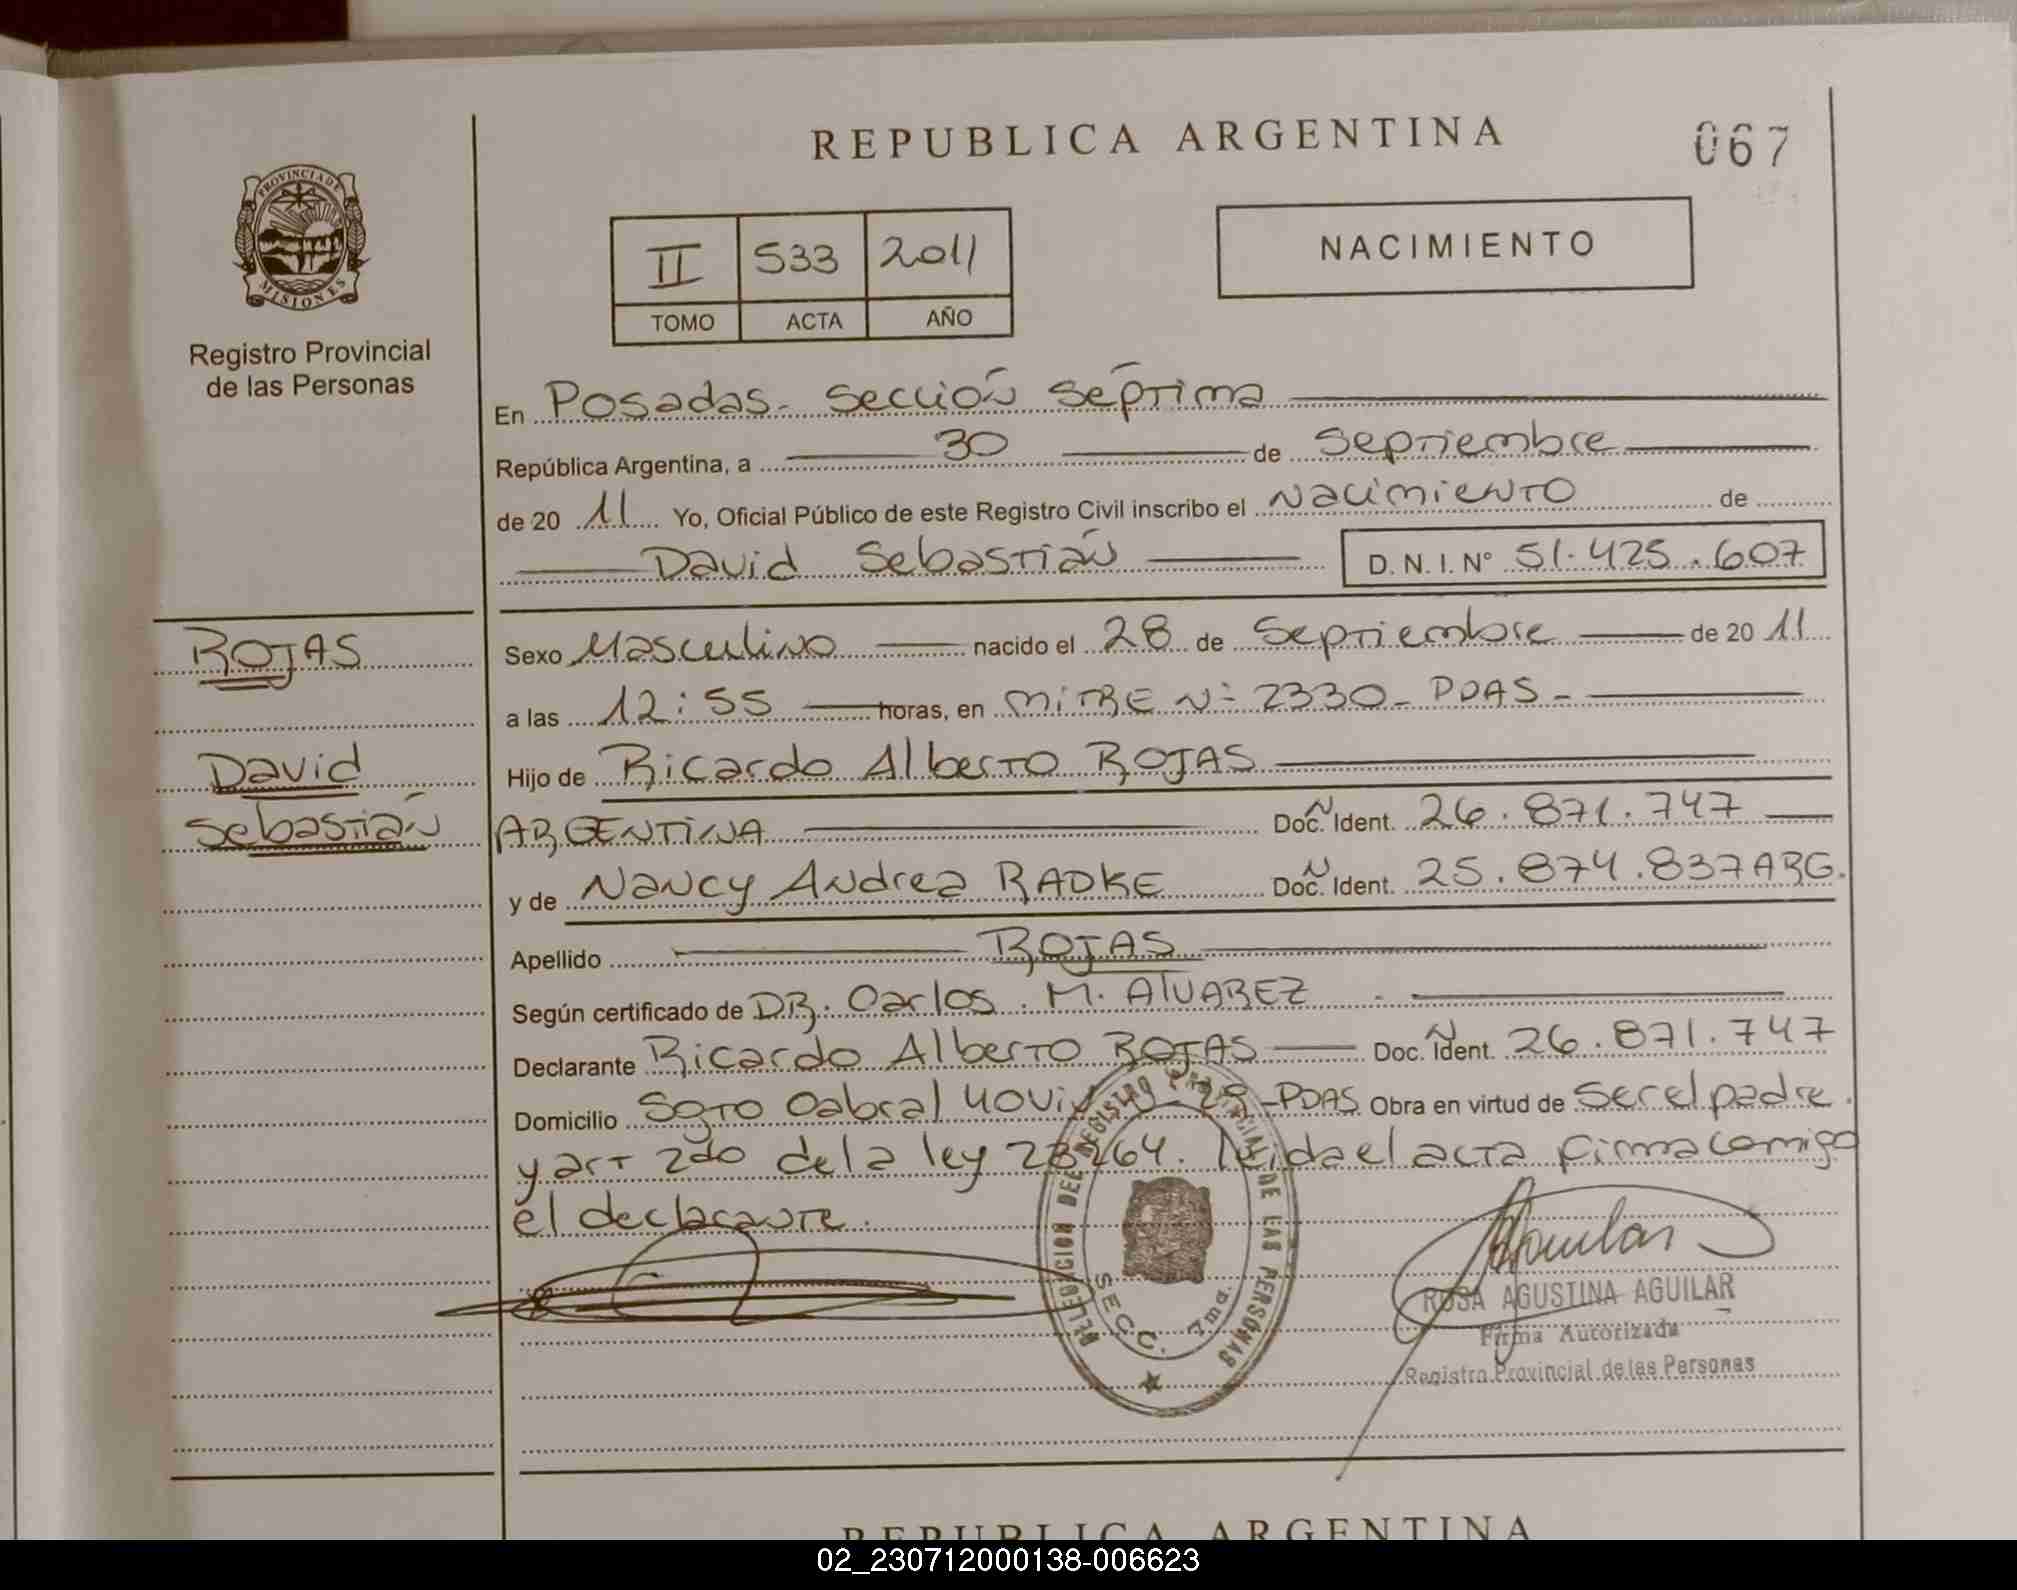 REPUBLICA ARGENTINA
067
PROVINCIA DE
MISIONES
Registro Provincial
de las Personas
II 533 2011
TOMO ACTA AÑO
NACIMIENTO
En Posadas - sección séptima
República Argentina, a 30 de septiembre
de 20 11 Yo, Oficial Público de este Registro Civil inscribo el Nacimiento de
David Sebastián D.N.I.Nº 51.425.607
ROJAS
David
Sebastián
Sexo Masculino nacido el 28 de Septiembre de 20 11
a las 12:55 horas, en MITRE Nº 2330 - PDAS -
Hijo de Ricardo Alberto ROJAS
ARGENTINA Doc. N Ident. 26.871.747
y de Nancy Andrea RADKE Doc. N Ident. 25.874.837 ARG.
Apellido ROJAS
Según certificado de DR. Carlos M. AlVAREZ
Declarante Ricardo Alberto ROJAS Doc. N Ident. 26.871.747
Domicilio Sgto Cabral 29 - PDAS Obra en virtud de ser el padre
y art 2do de la ley 264. leida el acta firma comigo
el declarante.
DELEGACION DEL REGISTRO PROVINCIAL DE LAS PERSONAS
SECC. 7ma.
ROSA AGUSTINA AGUILAR
Firma Autorizada
Registro Provincial de las Personas
REPUBLICA ARGENTINA
02_230712000138-006623